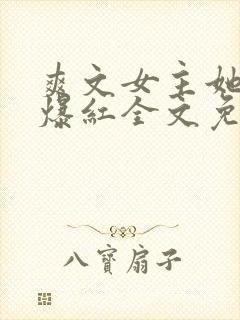 爽文女主她
爆红全文免
八宝扇子